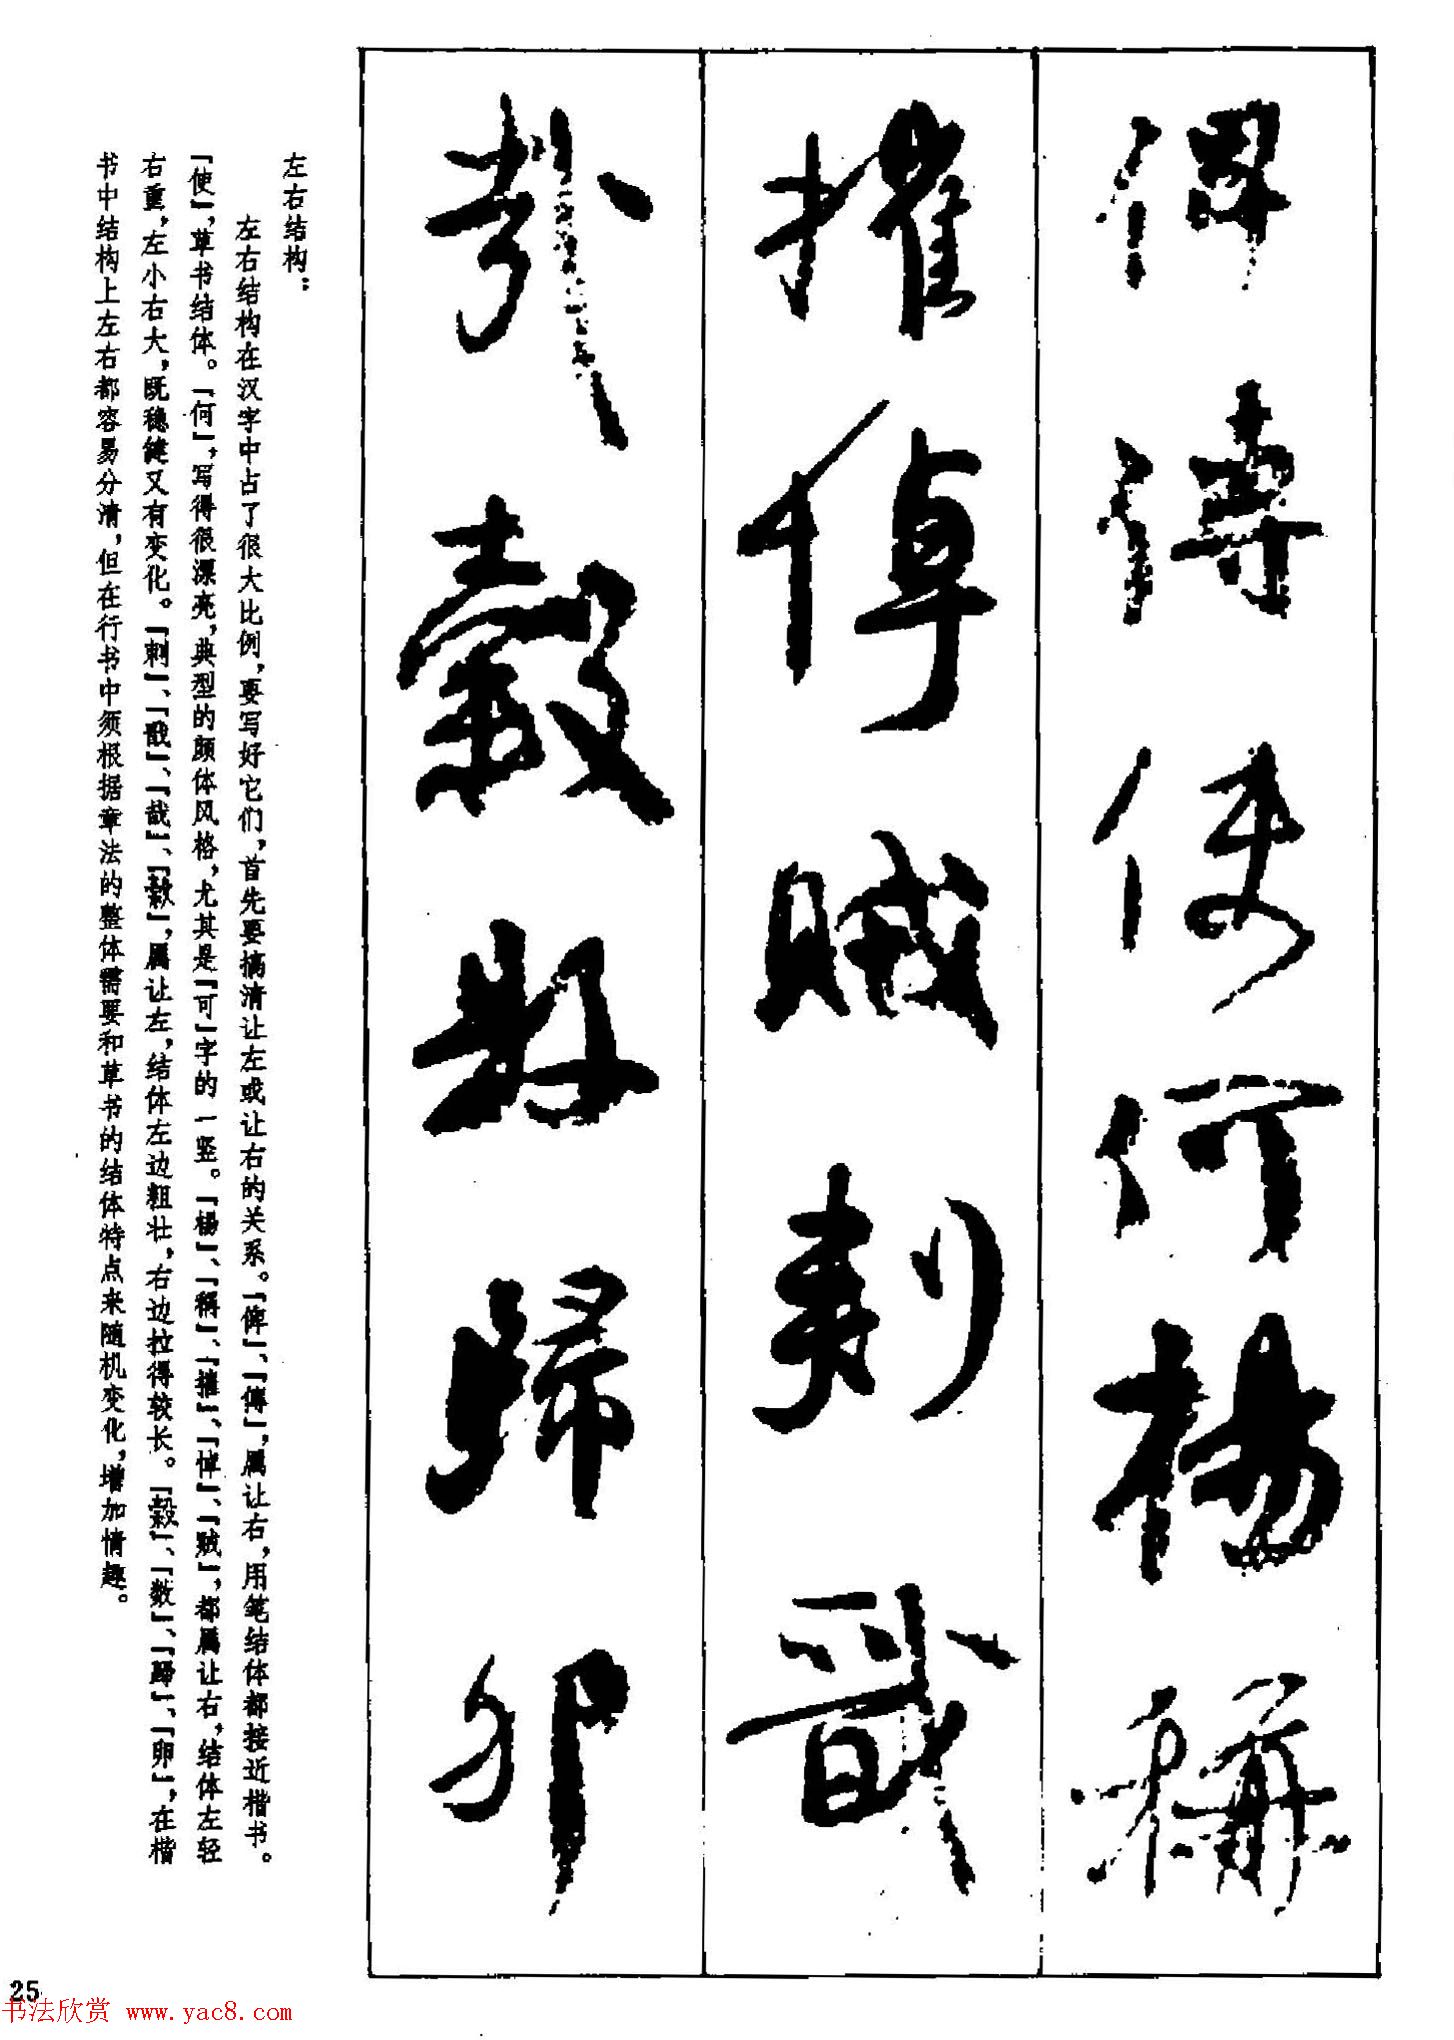 俾傅使何楊稱
摧悼賊刺戩
哉穀數歸卯
左右结构：
左右结构在汉字中占了很大比例，要写好它们，首先要搞清让左或让右的关系。「俾」、「傅」，属让右，用笔结体都接近楷书。
「使」，草书结体。「何」，写得很漂亮，典型的颜体风格，尤其是「可」字的一竖。「楊」、「稱」、「摧」、「悼」、「贼」，都属让右，结体左轻
右重，左小右大，既稳健又有变化。「刺」、「戬」、「哉」、「款」，属让左，结体左边粗壮，右边拉得较长。「穀」、「数」、「歸」、「卯」，在楷
书中结构上左右都容易分清，但在行书中须根据章法的整体需要和草书的结体特点来随机变化，增加情趣。
25
书法欣赏 www.yac8.com